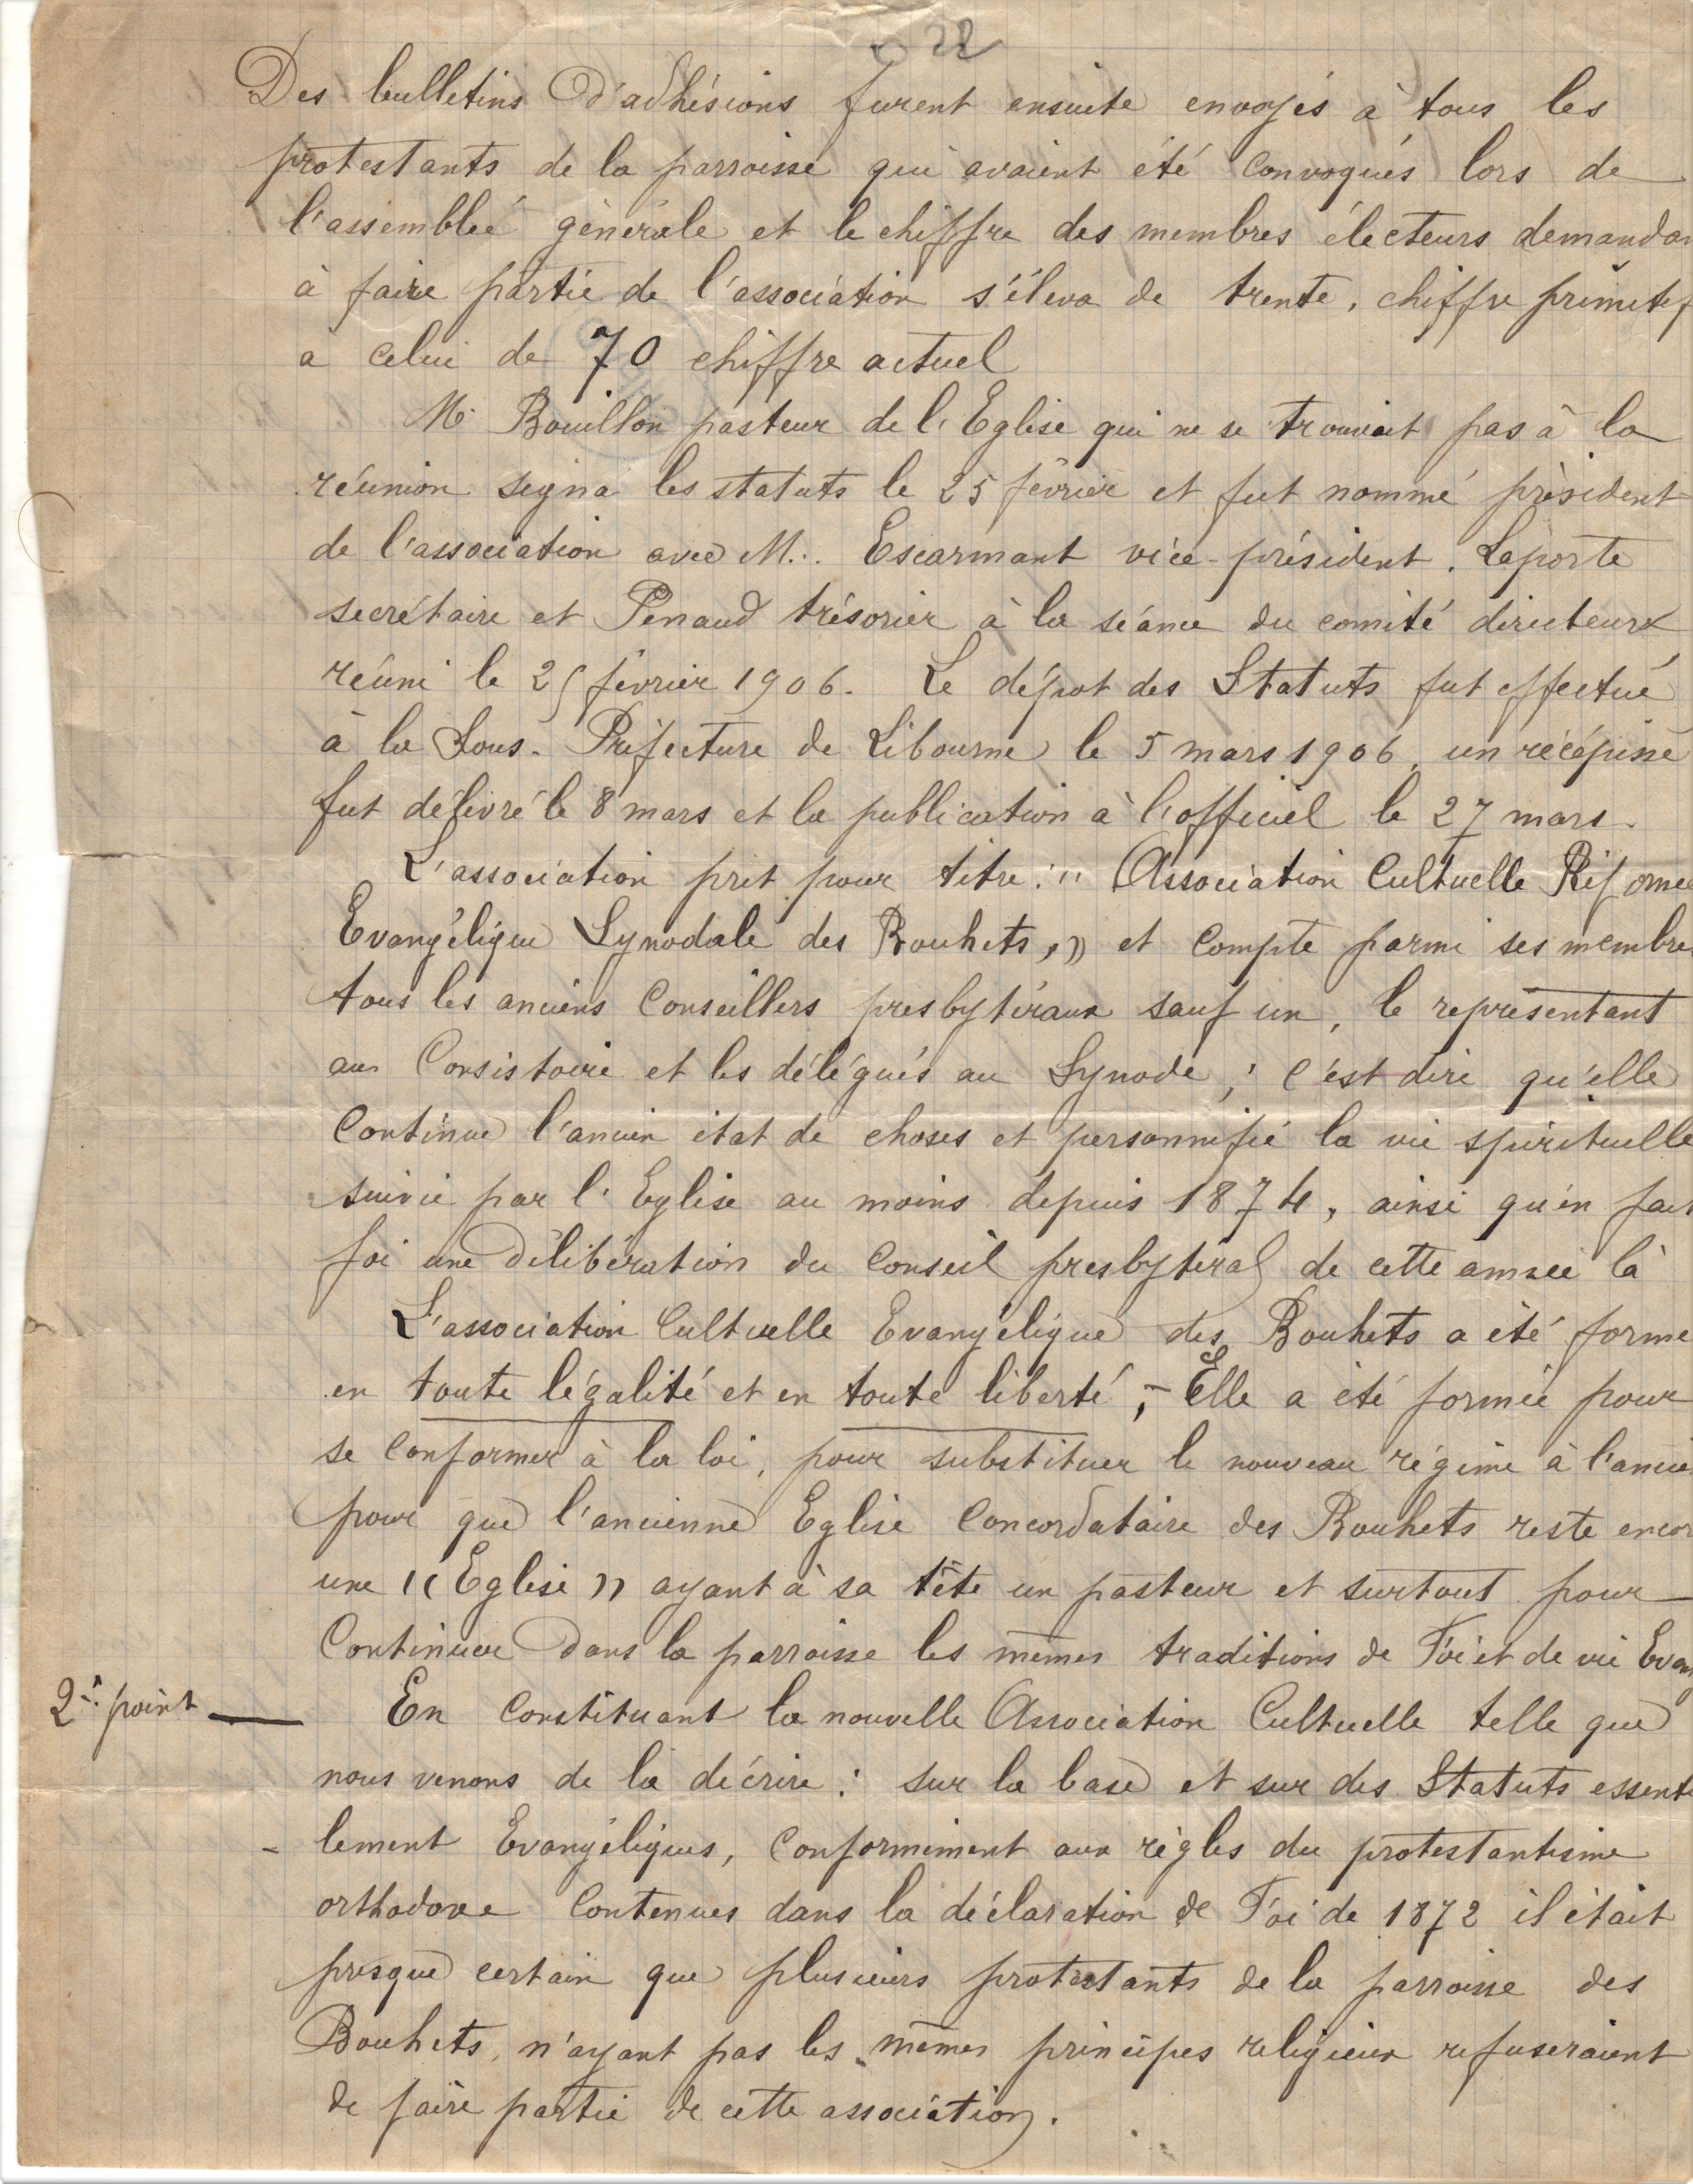 22
Des bulletins d'adhésions furent ensuite envoyés à tous les
protestants de la parroisse qui avaient été convoqués lors de
l'assemblée générale et le chiffre des membres électeurs demandan
à faire partie de l'association s'éleva de trente, chiffre primitif
a celui de 70 chiffre actuel
M. Bouillon pasteur de l'Eglise qui ne se trouvait pas à la
réunion signa les statuts le 25 février et fut nommé président
de l'association avec M.. Escarmant vice-président, Laporte
secrétaire et Penaud trésorier à la séance du comité directeur
réuni le 25 février 1906. Le dépot des Statuts fut effectué
à la Sous-Préfecture de Libourne le 5 mars 1906, un récépissé
fut délivré le 8 mars et la publication à l'officiel le 27 mars.
L'association prit pour titre: " Association Cultuelle Réformée
Evangélique Synodale des Bouhets," et compte parmi ses membres
tous les anciens Conseillers presbytéraux sauf un, le représentant
au Consistoire et les délégués au Synode; c'est dire qu'elle
Continue l'ancien état de choses et personnifie la vie spirituelle
suivie par l'Eglise au moins depuis 1874, ainsi qu'en fait
foi une délibération du Conseil presbytéral de cette année là
L'association Cultuelle Evangélique des Bouhets a été forme
en toute légalité et en toute liberté; - Elle a été formée pour
se conformer à la loi, pour substituer le nouveau régime à l'ancie
pour que l'ancienne Eglise Concordataire des Bouhets reste encor
une "Eglise" ayant à sa tête un pasteur et surtout pour
Continuer dans la parroisse les mêmes traditions de Foi et de vie Evang
2e point — En constituant la nouvelle Association Cultuelle telle que
nous venons de la décrire: sur la base et sur des Statuts essenti
- lement Evangéliques, conformément aux règles du protestantisme
orthodoxe Contenues dans la déclaration de Foi de 1872 il était
presque certain que plusieurs protestants de la parroisse des
Bouhets, n'ayant pas les mêmes principes religieux refuseraient
de faire partie de cette association.